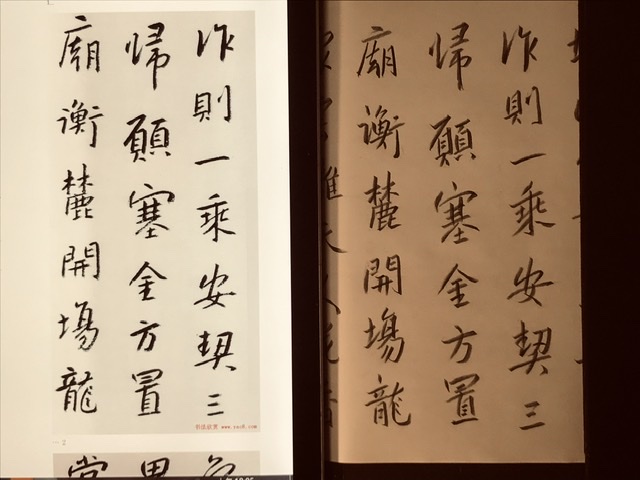 作則一乘安契三
歸願塞金方置
廟衡麓開場龍
书法欣赏 www.yac8.com
2
作則一乘安契三
歸願塞金方置
廟衡麓開場龍